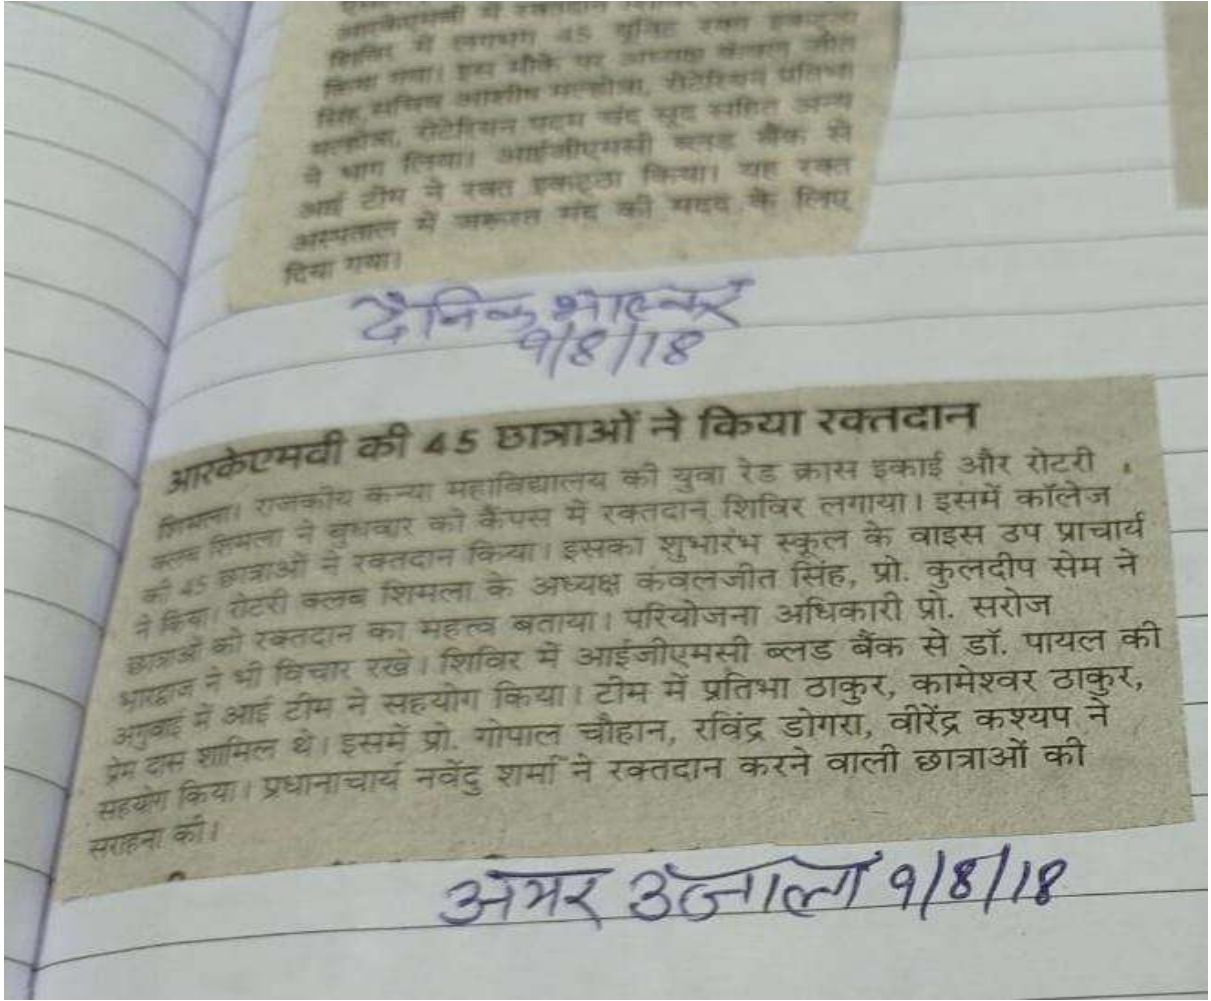 आरकेएमवी में रक्तदान
शिविर में लगभग 45 यूनिट रक्त इकट्ठा
किया गया। इस मौके पर अध्यक्ष जीत
सिंह, सचिव आशीष मल्होत्रा, रोटेरियन प्रतिभा
मल्होत्रा, रोटेरियन पदम चंद सूद सहित अन्य
ने भाग लिया। आईजीएमसी ब्लड बैंक से
आई टीम ने रक्त इकट्ठा किया। यह रक्त
अस्पताल में जरूरत मंद की मदद के लिए
दिया गया।
दैनिक भास्कर
9/8/18
आरकेएमवी की 45 छात्राओं ने किया रक्तदान
शिमला। राजकीय कन्या महाविद्यालय की युवा रेड क्रास इकाई और रोटरी
क्लब शिमला ने बुधवार को कैंपस में रक्तदान शिविर लगाया। इसमें कॉलेज
की 45 छात्राओं ने रक्तदान किया। इसका शुभारंभ स्कूल के वाइस उप प्राचार्य
ने किया। रोटरी क्लब शिमला के अध्यक्ष कंवलजीत सिंह, प्रो. कुलदीप सेम ने
छात्राओं को रक्तदान का महत्व बताया। परियोजना अधिकारी प्रो. सरोज
भारद्वाज ने भी विचार रखे। शिविर में आईजीएमसी ब्लड बैंक से डॉ. पायल की
अगुवाई में आई टीम ने सहयोग किया। टीम में प्रतिभा ठाकुर, कामेश्वर ठाकुर,
प्रेम दास शामिल थे। इसमें प्रो. गोपाल चौहान, रविंद्र डोगरा, वीरेंद्र कश्यप ने
सहयोग किया। प्रधानाचार्य नवेंदु शर्मा ने रक्तदान करने वाली छात्राओं की
सराहना की।
अमर उजाला 9/8/18